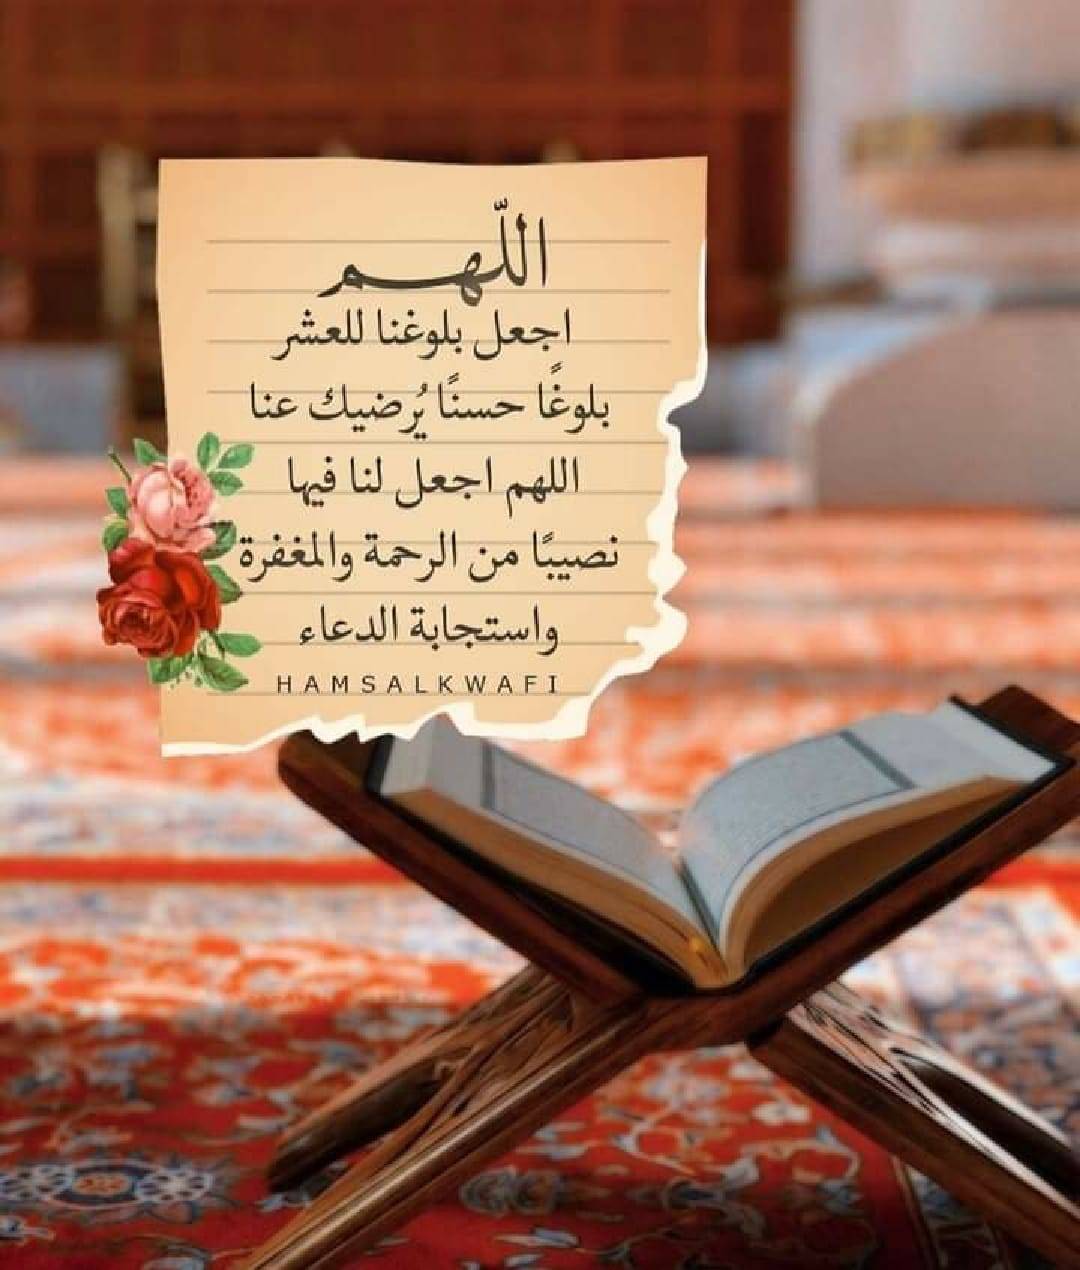 اللّهم
اجعل بلوغنا للعشر
بلوغًا حسنًا يُرضيك عنا
اللهم اجعل لنا فيها
نصيبًا من الرحمة والمغفرة
واستجابة الدعاء
HAMSALKWAFI